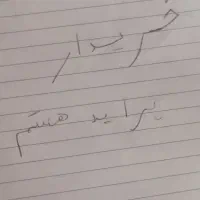 خریدار
براید هستم